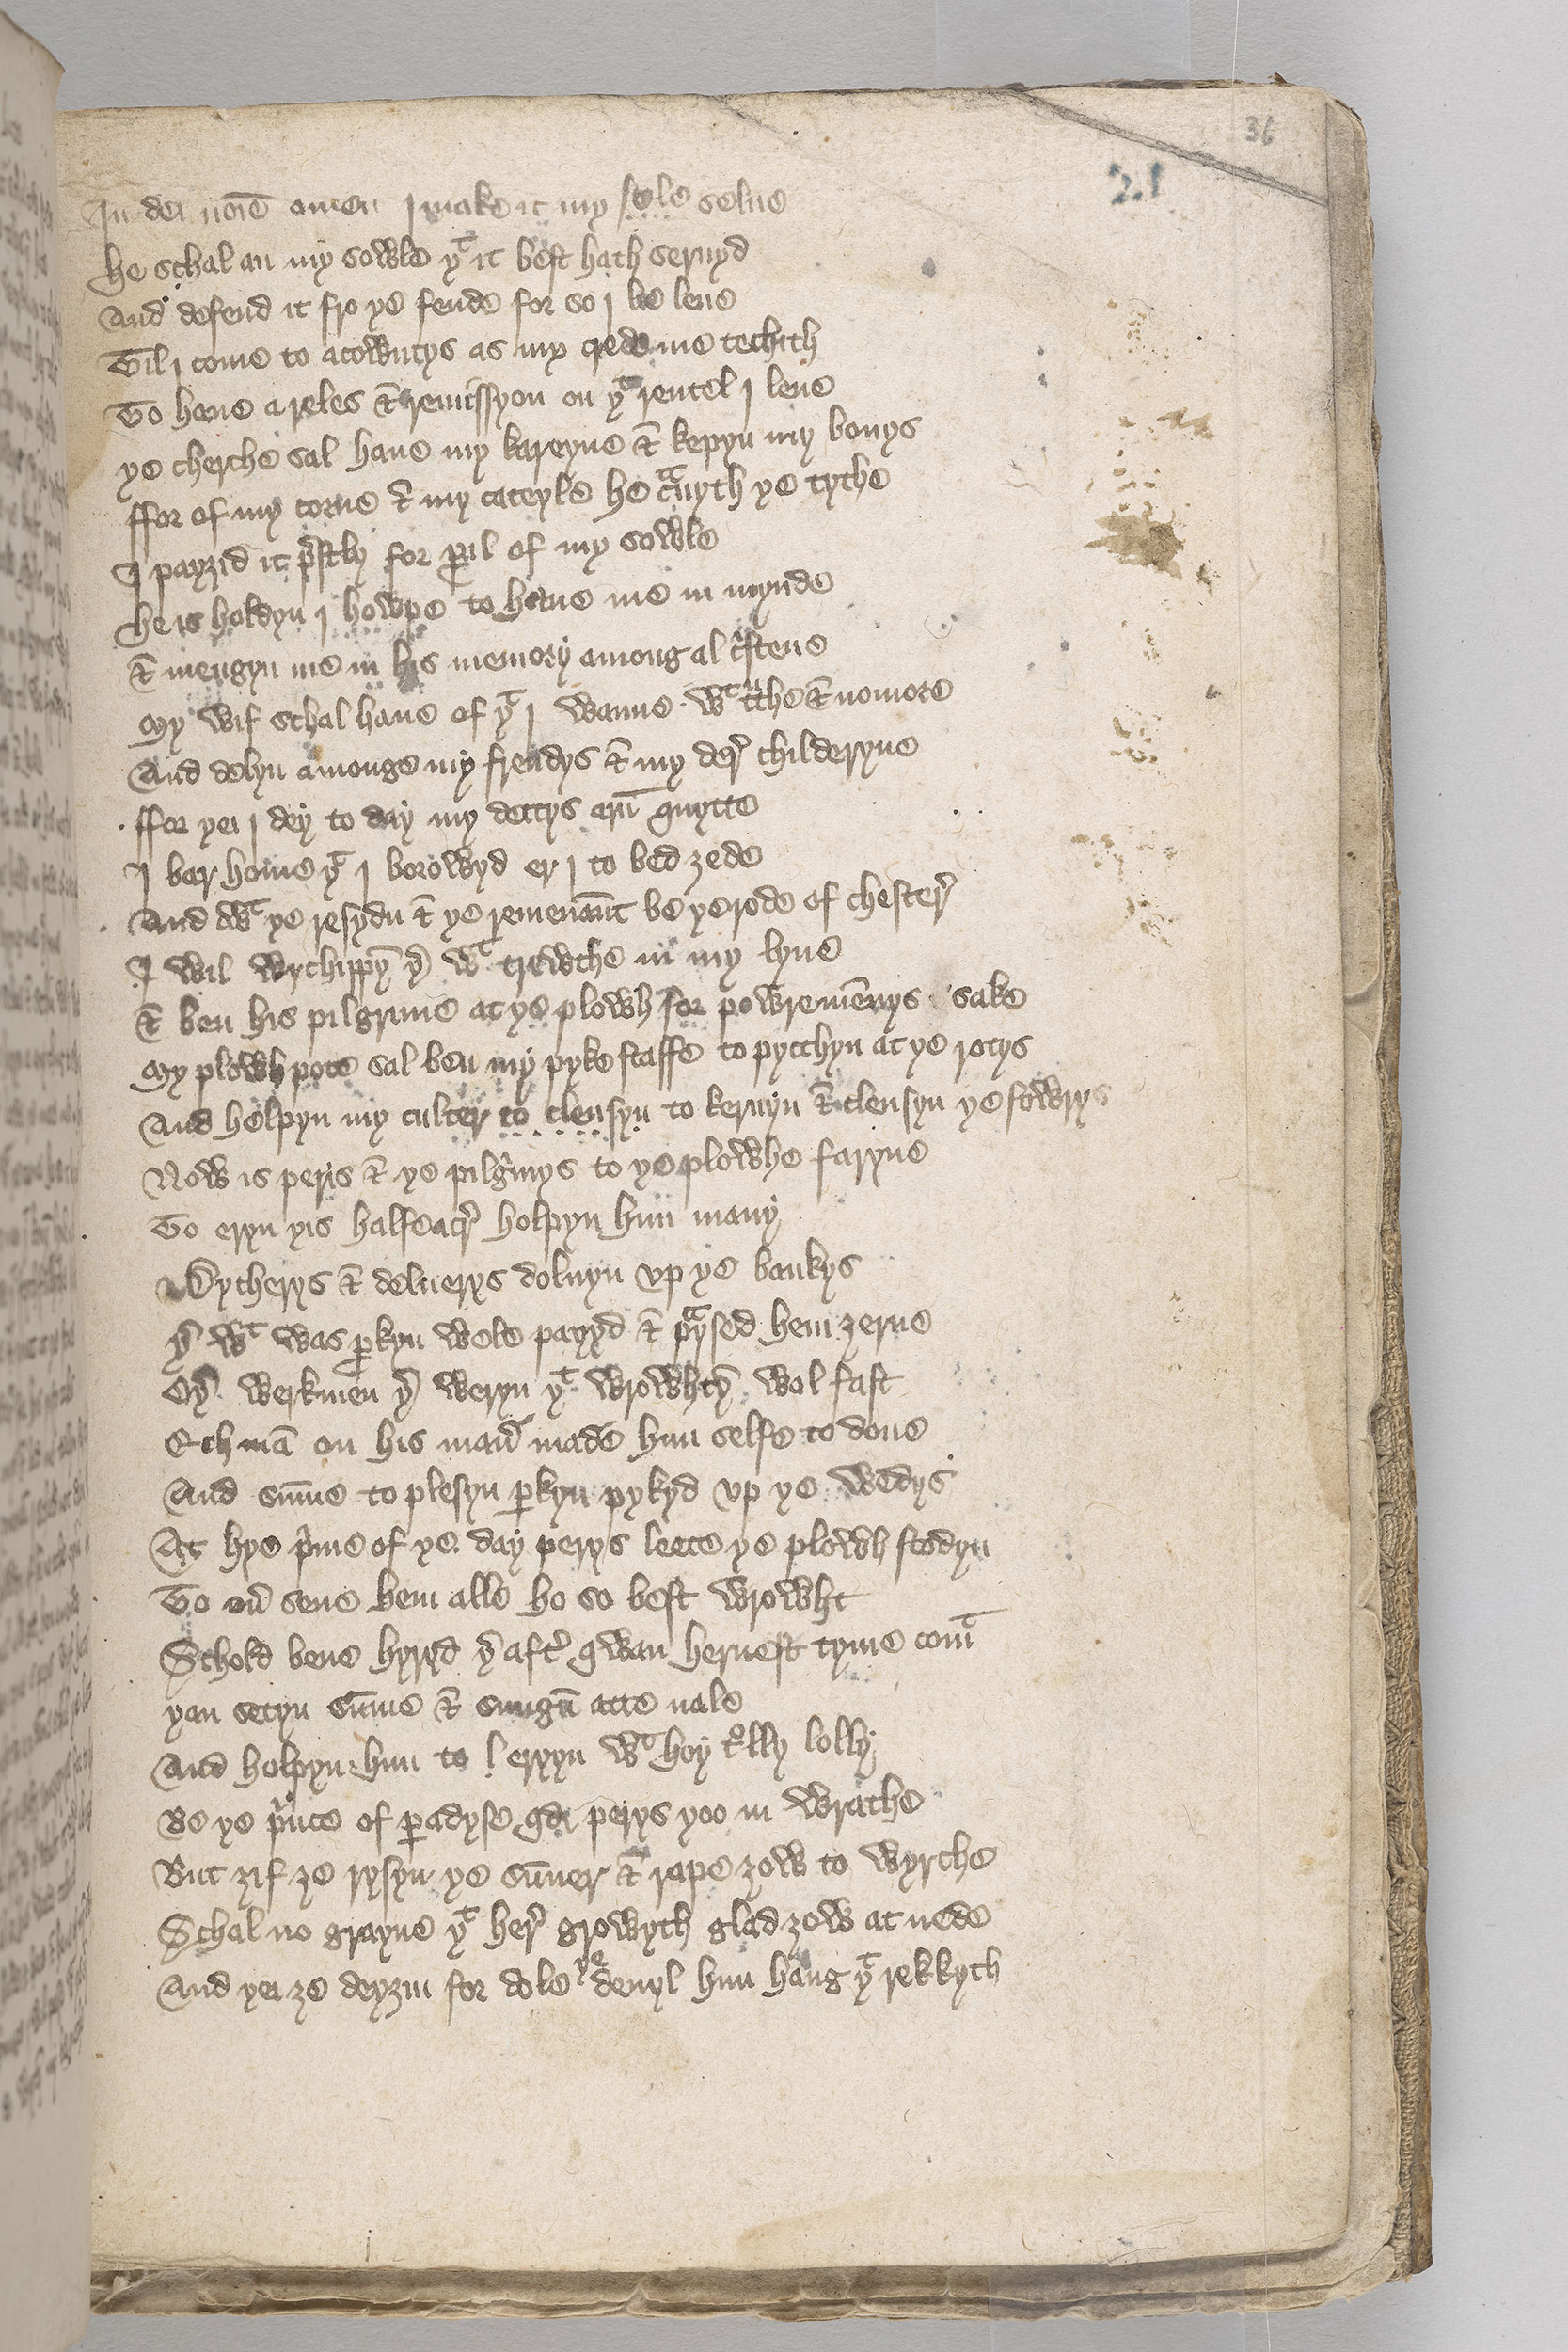 36
21
In dei noīe amen I make it my sele selue
he schal an my sowle yᵗ it best hath seruyd
And defend it fro ye fende for so I be leue
Til I come to acowntys as my crede me techith
To haue a reles & remissyon on yᵗ rentel I leue
ye cherche sal haue my kareyne & kepyn my bonys
ffor of my corne & my cateyle he cᵃuyth ye tythe
I payzid it p̄stly for ꝑil of my sowle
he is holdyn I howpe to haue me in mynde
& mengyn me in his memory among al cⁱstene
My wif schal haue of yᵗ I wanne wᵗ tᵘthe & nomore
And delyn amonge my frendys & my der̄ childeryne
ffor yei I dey to day my dettys arn̄ quytte
I bar home yᵗ I borowyd er I to bed zede
And wᵗ ye resydu & ye remenaūt be ye rode of chester̄
I wil wrchippyn̄ yʳ wᵗ trewthe in my lyue
& ben his pilgrime at ye plowh for powre mēnys sake
My plowh pote sal ben my pyke staffe to pytchyn at ye rotys
And helpyn my culter to clensyn to keruyn & clensyn ye fowrys
Now is peris & ye pilgⁱmys to ye plowhe faryne
To eryn yis halfe acr̄ holpyn him many
Dytherys & deluerys doluyn vp ye bankys
yʳ wᵗ was ꝑkyn wele payyd & pᵃysed hem zerne
Oyʳ werkmen yʳ weryn yᵗ wrowhtyn̄ wol fast
Ech mā on his man̄ made him selfe to done
And sūme to plesyn ꝑkyn pykyd vp ye wedys
At hye pⁱme of ye day perys leete ye plowh stodyn
To oū sene hem alle ho so best wrowht
Schold bene hyryd yʳ aftʳ qwan heruest tyme comᵗ
yan setyn sūme & sungn̄ atte nale
And holpyn him to eryyn wᵗ hoy tᵒlly lolly
Be ye pⁱnce of ꝑadyse qd perys yoo in wrathe
But zif ze rysyn ye sūner & rape zow to wyrche
Schal no grayne yᵗ her̄ growyth glad zow at nede
And yei ze deyzin for dole ye deuyl him hang yᵗ rekkyth